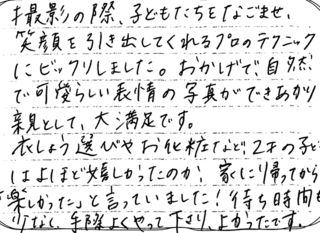 撮影の際、子どもたちをなごませ、
笑顔を引き出してくれるプロのテクニック
にビックリしました。おかげで、自然
で可愛らしい表情の写真ができあがり
親として、大満足です。
衣しょう選びやお化粧など、2才の子ど
はよほど嬉しかったのか、家に帰ってから
楽しかった」と言っていました!待ち時間も
りなく、手際よくやって下さり、よかったです。